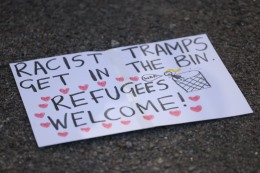 RACIST TRAMPS
GET IN THE BIN.
REFUGEES
WELCOME!